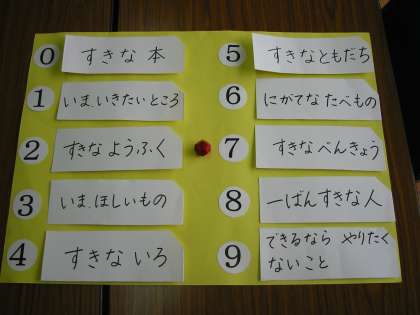 0 すきな 本
1 いま いきたい ところ
2 すきな ようふく
3 いま、ほしいもの
4 すきな いろ
5 すきなともだち
6 にがてな たべもの
7 すきな べんきょう
8 一ばん すきな 人
9 できるなら やりたく
ないこと